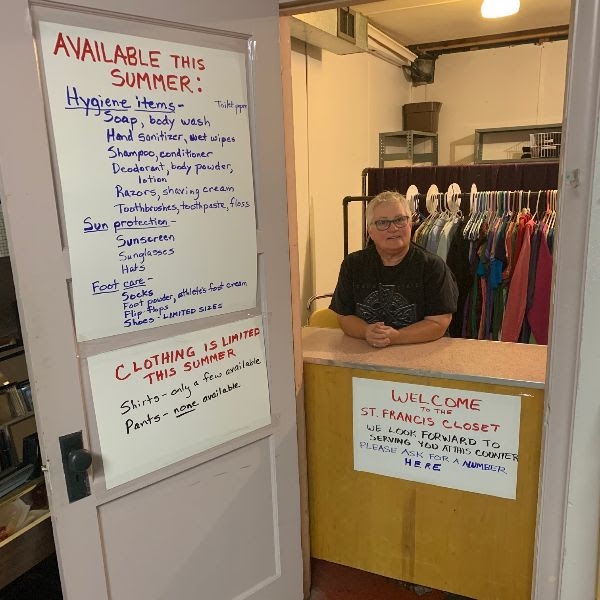 AVAILABLE THIS
SUMMER:
Hygiene items- Toilet paper
Soap, body wash
Hand sanitizer, wet wipes
Shampoo, conditioner
Deodorant, body powder,
lotion
Razors, shaving cream
Toothbrushes, toothpaste, floss
Sun protection-
Sunscreen
Sunglasses
Hats
Foot care-
Socks
Foot powder, athlete's foot cream
Flip flops
Shoes - LIMITED SIZES
CLOTHING IS LIMITED
THIS SUMMER
Shirts - only a few available
Pants - none available
WELCOME
TO THE
ST. FRANCIS CLOSET
WE LOOK FORWARD TO
SERVING YOU AT THIS COUNTER
PLEASE ASK FOR A NUMBER
HERE